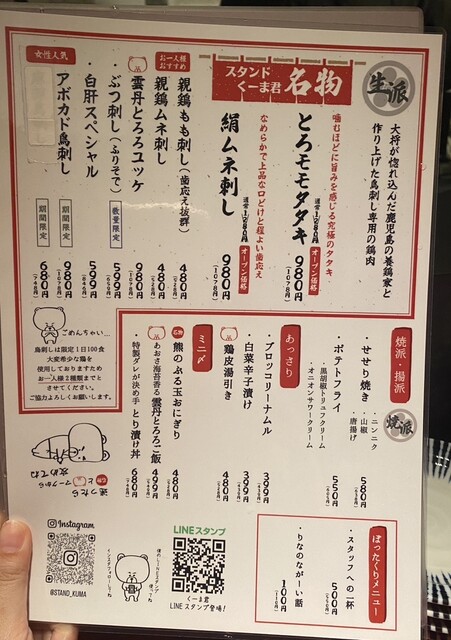 生派
大将が惚れ込んだ鹿児島の養鶏家と
作り上げた鳥刺し専用の鶏肉
スタンド
くーま君
名物
噛むほどに旨みを感じる究極のタタキ
とろモモタタキ
通常1280円
オープン価格
980円
(1078円)
なめらかで上品な口どけと程よい歯応え
絹ムネ刺し
通常1280円
オープン価格
980円
(1078円)
お一人様
おすすめ
親鶏もも刺し(歯応え抜群)
480円
親鶏ムネ刺し
480円
雲丹とろろユッケ
980円
・ぶつ刺し(ふりそで)
数量限定
599円
・白肝スペシャル
599円
女性人気
アボカド鳥刺し
期間限定
期間限定
680円
(748円)
ごめんちゃい…
鳥刺しは限定1日100食
大変希少な鶏を
使用しておりますため
お一人様2種類までと
させてください。
ご協力よろしくお願いします。
焼派・揚派
焼派
・せせり焼き
・ニンニク
・山椒
・唐揚げ
580円
・ポテトフライ
・黒胡椒トリュフクリーム
・オニオンサワークリーム
550円
あっさり
・ブロッコリーナムル
399円
・白菜辛子漬け
399円
・鶏皮湯引き
480円
ミニ〆
名物
熊のぷる玉おにぎり
480円
あおさ海苔香る雲丹とろろご飯
499円
・特製ダレが決め手 とり漬け丼
680円
(748円)
ぼったくりメニュー
・スタッフへの一杯
500円
・りなのながーい話
100円
(110円)
迷ったら
名物と
マークから
攻めてね
Instagram
@STAND_KUMA
インスタフォローしてね
LINEスタンプ
くーま君
LINEスタンプ登場!